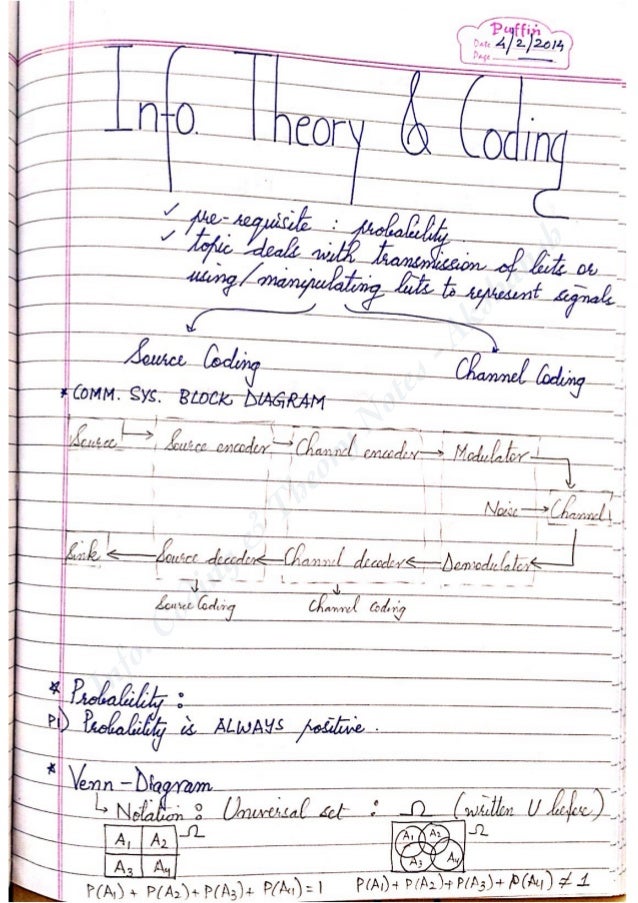 Puffin
Date 4/2/2014
Page
Info. Theory & Coding
✓ pre-requisite : probability
✓ topic deals with transmission of bits or
using/manipulating bits to represent signals
Source Coding
Channel Coding
* COMM. SYS. BLOCK DIAGRAM
Source → Source encoder → Channel encoder → Modulator
Noise → Channel
Sink ← Source decoder ← Channel decoder ← Demodulator
Source Coding Channel coding
* Probability :
P1) Probability is ALWAYS positive.
* Venn-Diagram
↳ Notation : Universal set : Ω (written U before)
A₁ A₂ Ω A₁ A₂ Ω
A₃ A₄ A₃ A₄
P(A₁) + P(A₂) + P(A₃) + P(A₄) = 1 P(A₁) + P(A₂) + P(A₃) + P(A₄) ≠ 1